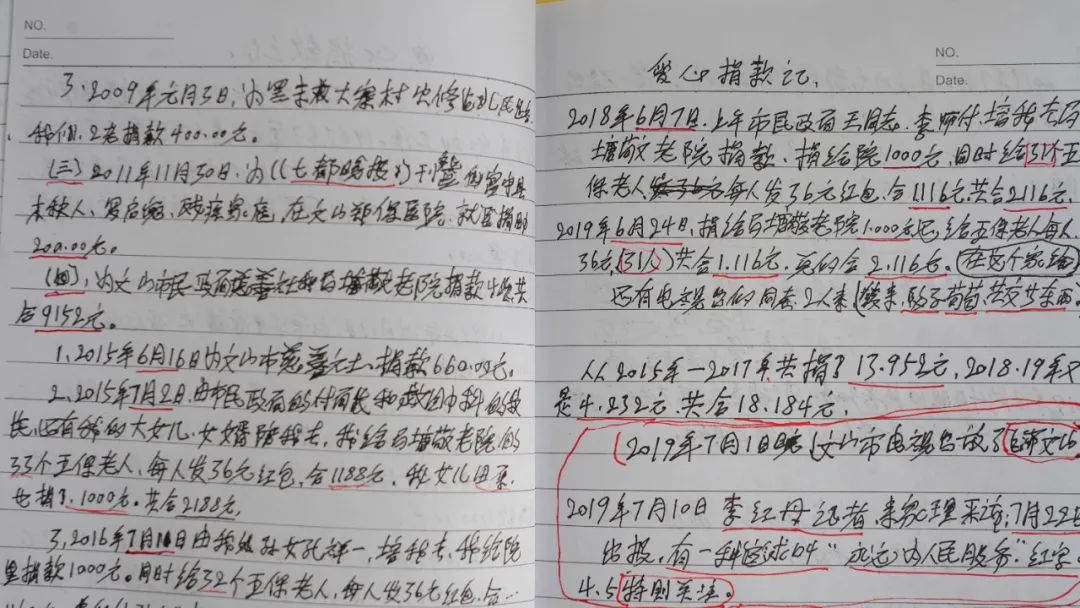 NO.
Date.
3、2009年元月3日，为黑末底大寨村
我们2老捐款400.00元。
(三)、2011年11月30日，为《七都晚报》刊登
人、罗启、残疾家庭，在文山郑保医院，就医捐助
200.00元。
(四)、为文山市民政局慈善 和马塘敬老院捐款4次共
合9152元。
1、2015年6月16日为文山市慈善 捐款660.00元。
2、2015年7月2日，由市民政局的付局长和 的
还有我的大女儿、女婿陪我去，我给马塘敬老院的
33个五保老人，每人发36元红包，合1188元，我女儿
也捐了1000元。共合2188元，
3、2016年7月1日由我的孙女孔祥一，培我去，我给院
里捐款1000元。同时给32个五保老人，每人发36元红包，合…
NO.
Date.
爱心捐款记、
2018年6月7日，上午市民政局王同志、李师付、培我去马
塘敬老院捐款、捐给院1000元，同时给(31)个五
保老人 每人发36元红包，合1116元，共合2116元，
2019年6月24日，捐给马塘敬老院1.000元 给五保老人每人
36元(31人)共合1.116元， 合2.116元。
还有电视台的同志2人来
从2015年一2017年共捐了13.952元，2018.19年又
是4.232元，共合18.184元，
(2019年7月1日晚 文山市电视台放了
2019年7月10日 李红丹记者，来家理采访，7月22日
出报，有一种 叫“永远为人民服务”红字
4.5 特别关注。